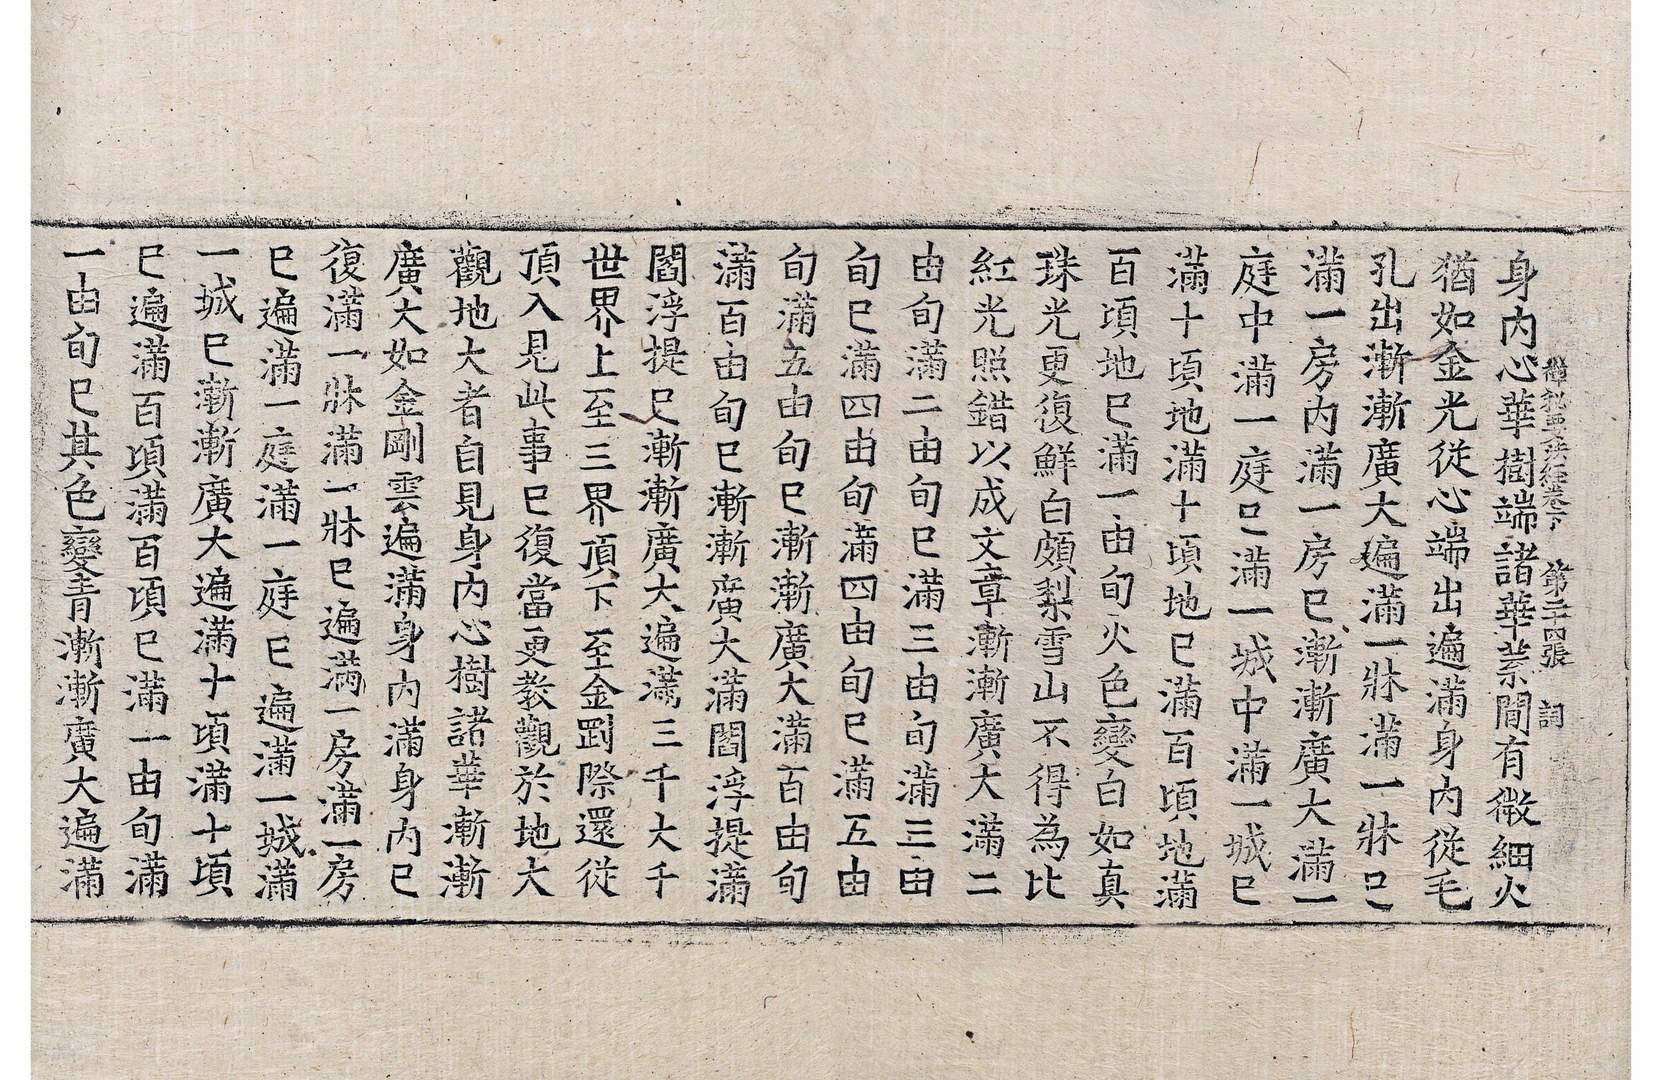 禪秘要法經卷下 第二十四張 詞
身内心華樹端諸華葉間有微細火
猶如金光從心端出遍滿身内從毛
孔出漸漸廣大遍滿一牀滿一牀已
滿一房内滿一房已漸漸廣大滿一
庭中滿一庭已滿一城中滿一城已
滿十頃地滿十頃地已滿百頃地滿
百頃地已滿一由旬火色變白如真
珠光更復鮮白頗梨雪山不得為比
紅光照錯以成文章漸漸廣大滿二
由旬滿二由旬已滿三由旬滿三由
旬已滿四由旬滿四由旬已滿五由
旬滿五由旬已漸漸廣大滿百由旬
滿百由旬已漸漸廣大滿閻浮提滿
閻浮提已漸漸廣大遍滿三千大千
世界上至三界頂下至金剛際還從
頂入見此事已復當更教觀於地大
觀地大者自見身内心樹諸華漸漸
廣大如金剛雲遍滿身内滿身内已
復滿一牀滿一牀已遍滿一房滿一房
已遍滿一庭滿一庭已遍滿一城滿
一城已漸漸廣大遍滿十頃滿十頃
已遍滿百頃滿百頃已滿一由旬滿
一由旬已其色變青漸漸廣大遍滿